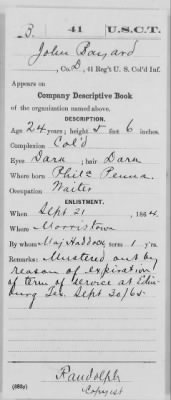 B. 41 U.S.C.T.
John Bayard
, Co. D, 41 Reg't U. S. Col'd Inf.
Appears on
Company Descriptive Book
of the organization named above.
DESCRIPTION.
Age 24 years; height 5 feet 6 inches.
Complexion Col'd
Eyes Dark; hair Dark
Where born Phila Penna.
Occupation Waiter
ENLISTMENT.
When Sept 21, 1864.
Where Morristown
By whom Maj Haddock; term 1 y'rs.
Remarks: Mustered out by
reason of expiration
of term of service at Edin-
burg Tex. Sept 30/65.
Randolph
Copyist